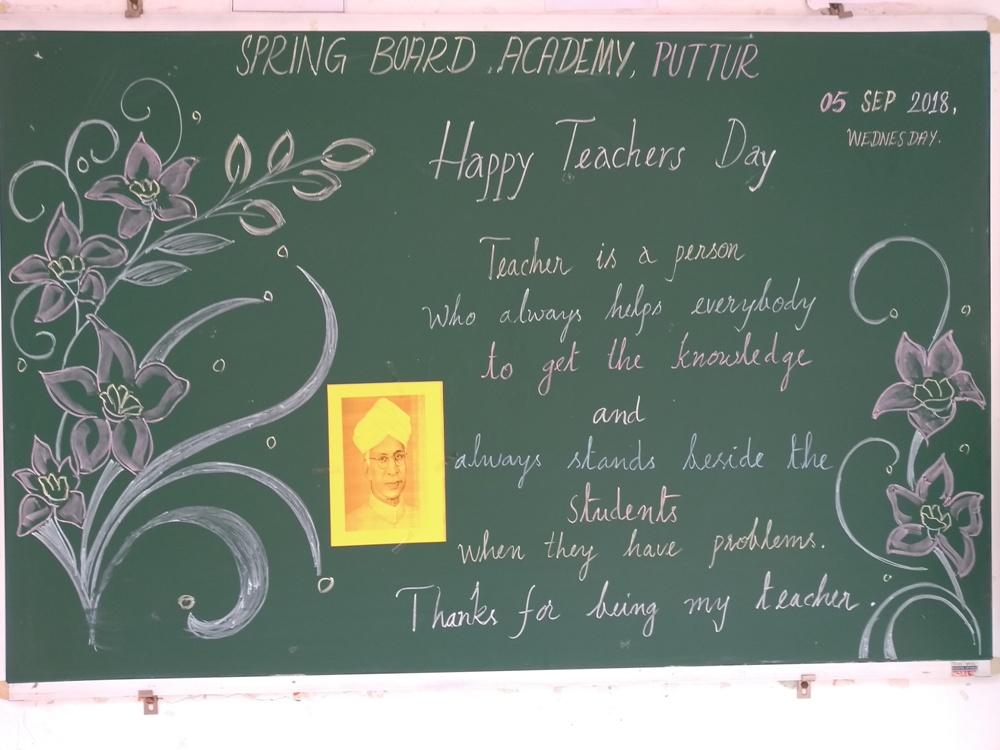 SPRING BOARD ACADEMY, PUTTUR
05 SEP 2018,
WEDNESDAY.
Happy Teachers Day
Teacher is a person
who always helps everybody
to get the knowledge
and
always stands beside the
students
when they have problems.
Thanks for being my teacher.